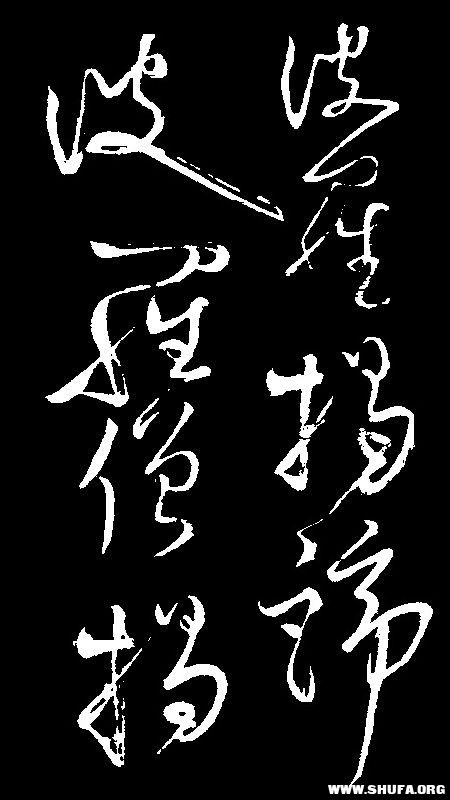 波羅揭諦
波羅僧揭
WWW.SHUFA.ORG